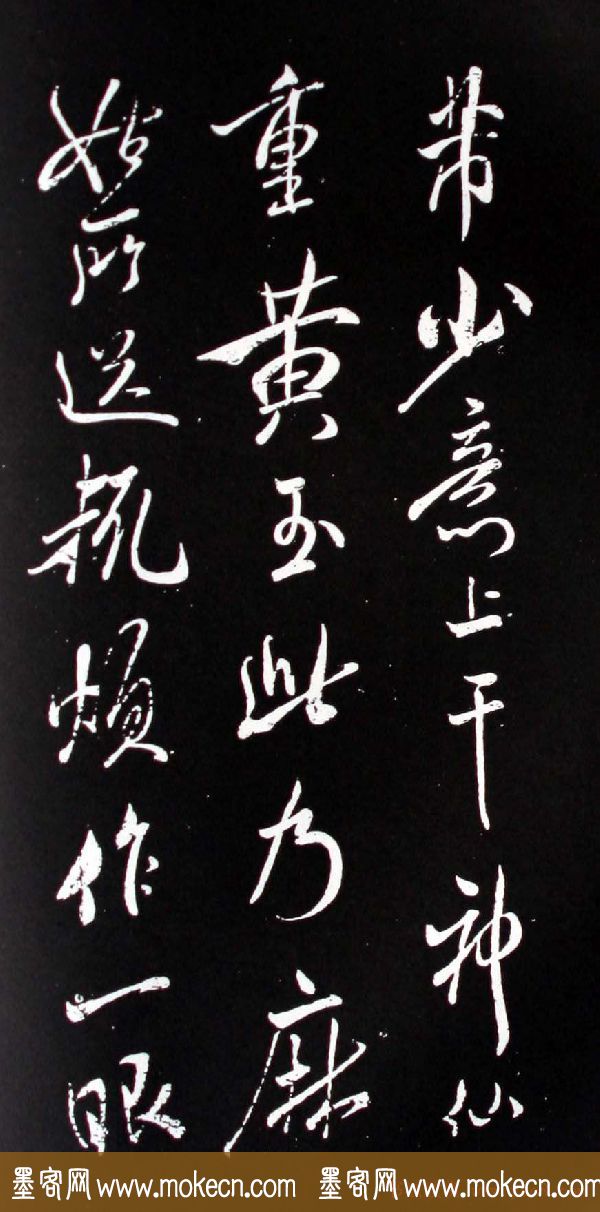 芾少意上干神仙
重黄玉此乃麻
姑所送煩作一眼
墨客网 www.mokecn.com 墨客网 www.mokecn.com